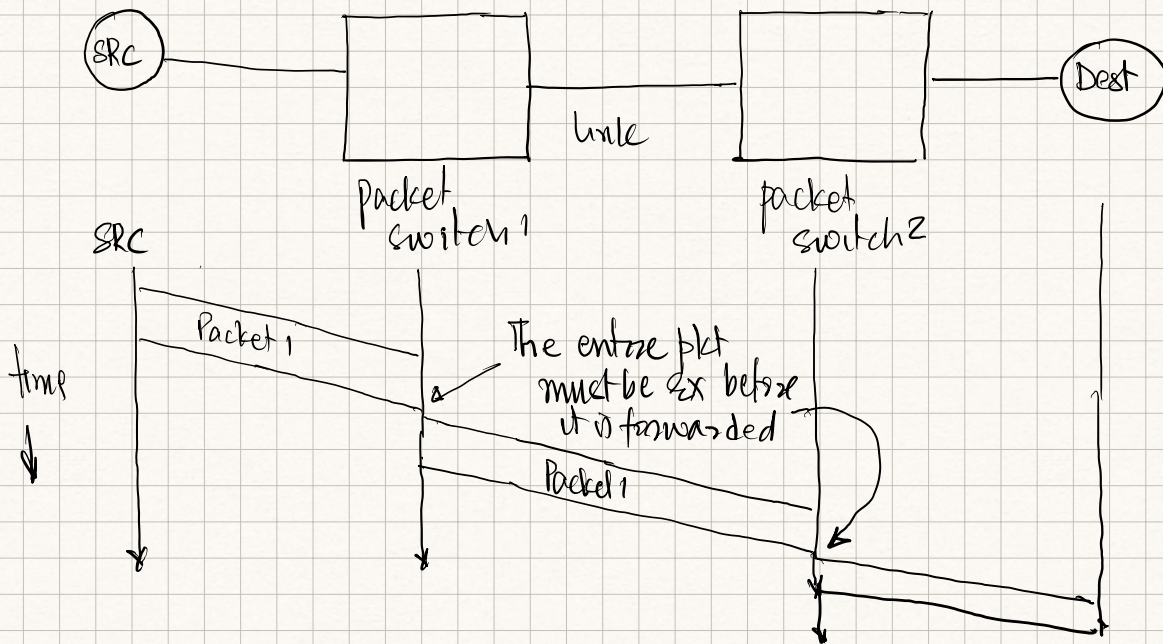 SRC
Dest
link
packet
switch 1
packet
switch 2
SRC
Packet 1
time
The entire pkt
must be rx before
it is forwarded
Packet 1